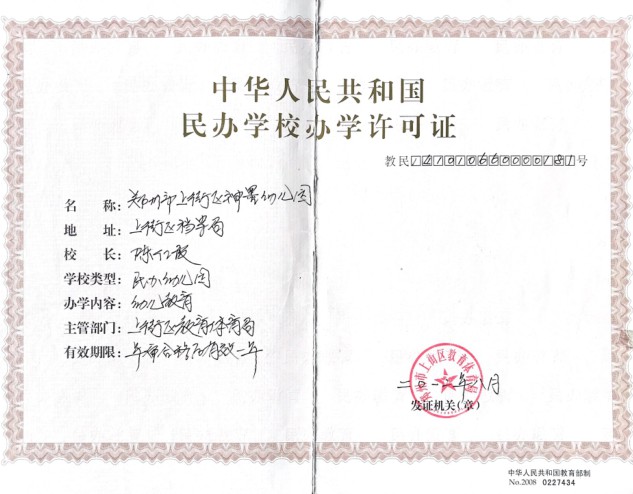 中华人民共和国
民办学校办学许可证
教民141010660000181号
名 称:郑州市上街区神墨幼儿园
地 址:上街区档案局
校 长:陈
学校类型:民办幼儿园
办学内容:幼儿教育
主管部门:上街区教育体育局
有效期限:年审合格后有效一年
郑州市上街区教育体育局
二〇一一年八月
发证机关(章)
中华人民共和国教育部制
No.2008 0227434